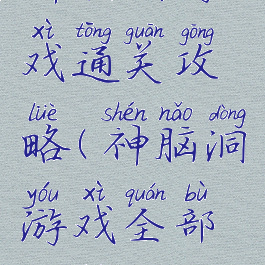 xì tōng guān gōng
戏通关攻
lüè shén nǎo dòng
略(神脑洞
yóu xì quán bù
游戏全部